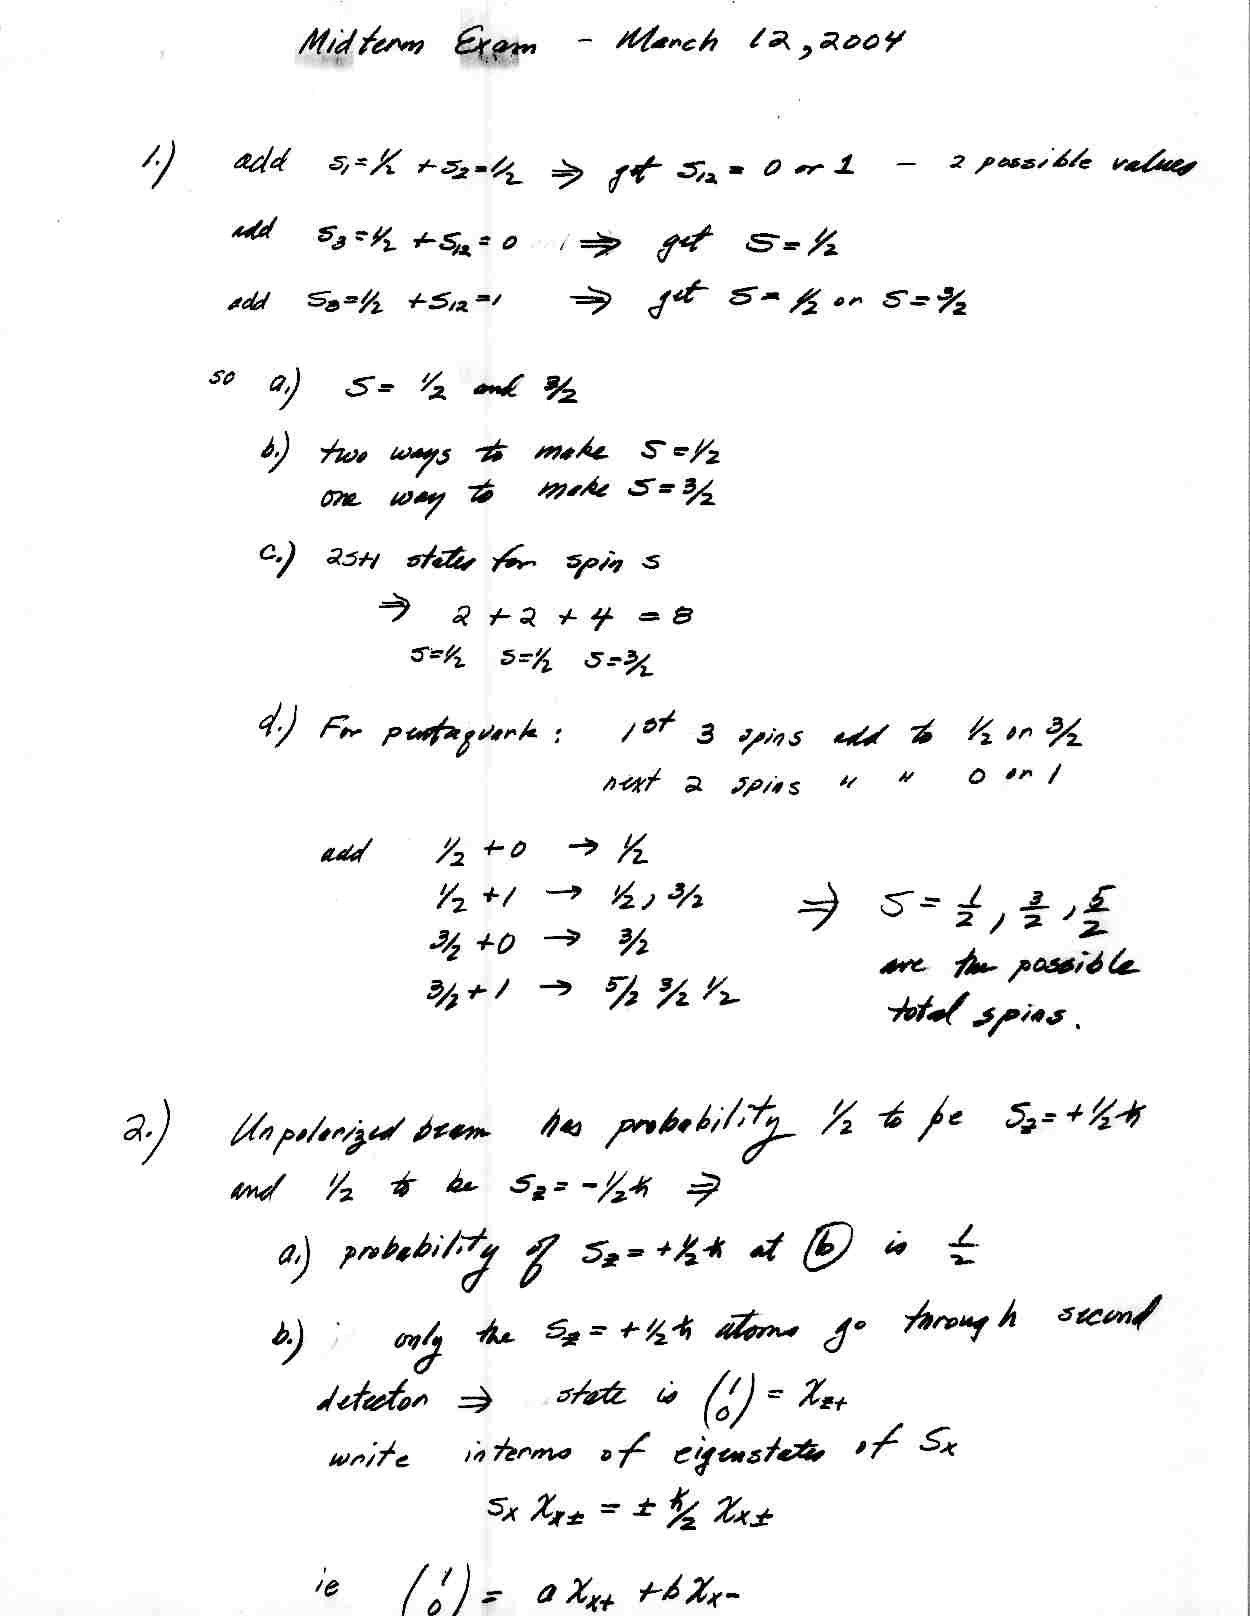 Midterm Exam - March 12, 2004
1.) add s₁=½ + s₂=½ ⇒ get s₁₂ = 0 or 1 - 2 possible values
add s₃=½ + s₁₂=0 ⇒ get s=½
add s₃=½ + s₁₂=1 ⇒ get s=½ or s=3/2
so a.) s= ½ and 3/2
b.) two ways to make s=½
one way to make s=3/2
c.) 2s+1 states for spin s
⇒ 2 + 2 + 4 = 8
s=½ s=½ s=3/2
d.) For pentaquark: 1st 3 spins add to ½ or 3/2
next 2 spins " " 0 or 1
add ½ + 0 → ½
½ + 1 → ½, 3/2 ⇒ s = 1/2, 3/2, 5/2
3/2 + 0 → 3/2 are the possible
3/2 + 1 → 5/2 3/2 ½ total spins.
2.) Unpolarized beam has probability ½ to be S_z=+½ħ
and ½ to be S_z=-½ħ ⇒
a.) probability of S_z=+½ħ at ⓑ is 1/2
b.) only the S_z=+½ħ atoms go through second
detector ⇒ state is (1 0) = χ_z+
write interms of eigenstates of S_x
S_x χ_x± = ± ħ/2 χ_x±
ie (1 0) = a χ_x+ + b χ_x-